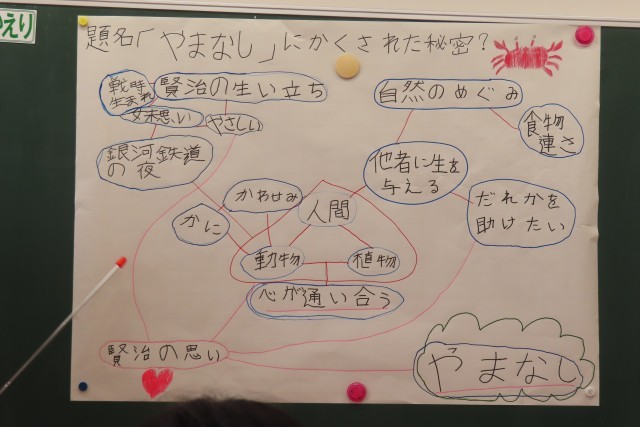 かえり
題名「やまなし」にかくされた秘密?
戦時
生まれ
賢治の生い立ち
妹思い
やさしい
銀河鉄道
の夜
自然のめぐみ
食物
連さ
他者に生を
与える
だれかを
助けたい
かわせみ
人間
かに
動物
植物
心が通い合う
賢治の思い
やまなし